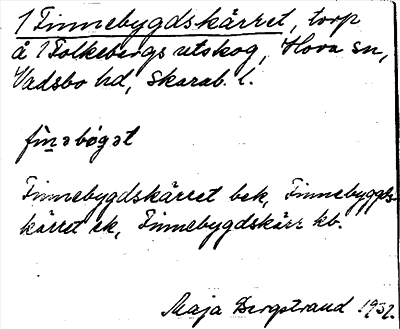 1 Finnebygdskärret, torp
å 1 Folkebergs utskog, Hova sn,
Vadsbo hd, Skarab. l.
fìnəbógət
Finnebygdskärret bek, Finnebyggds-
kärret ek, Finnebygdskärr kb.
Maja Bergstrand 1932.